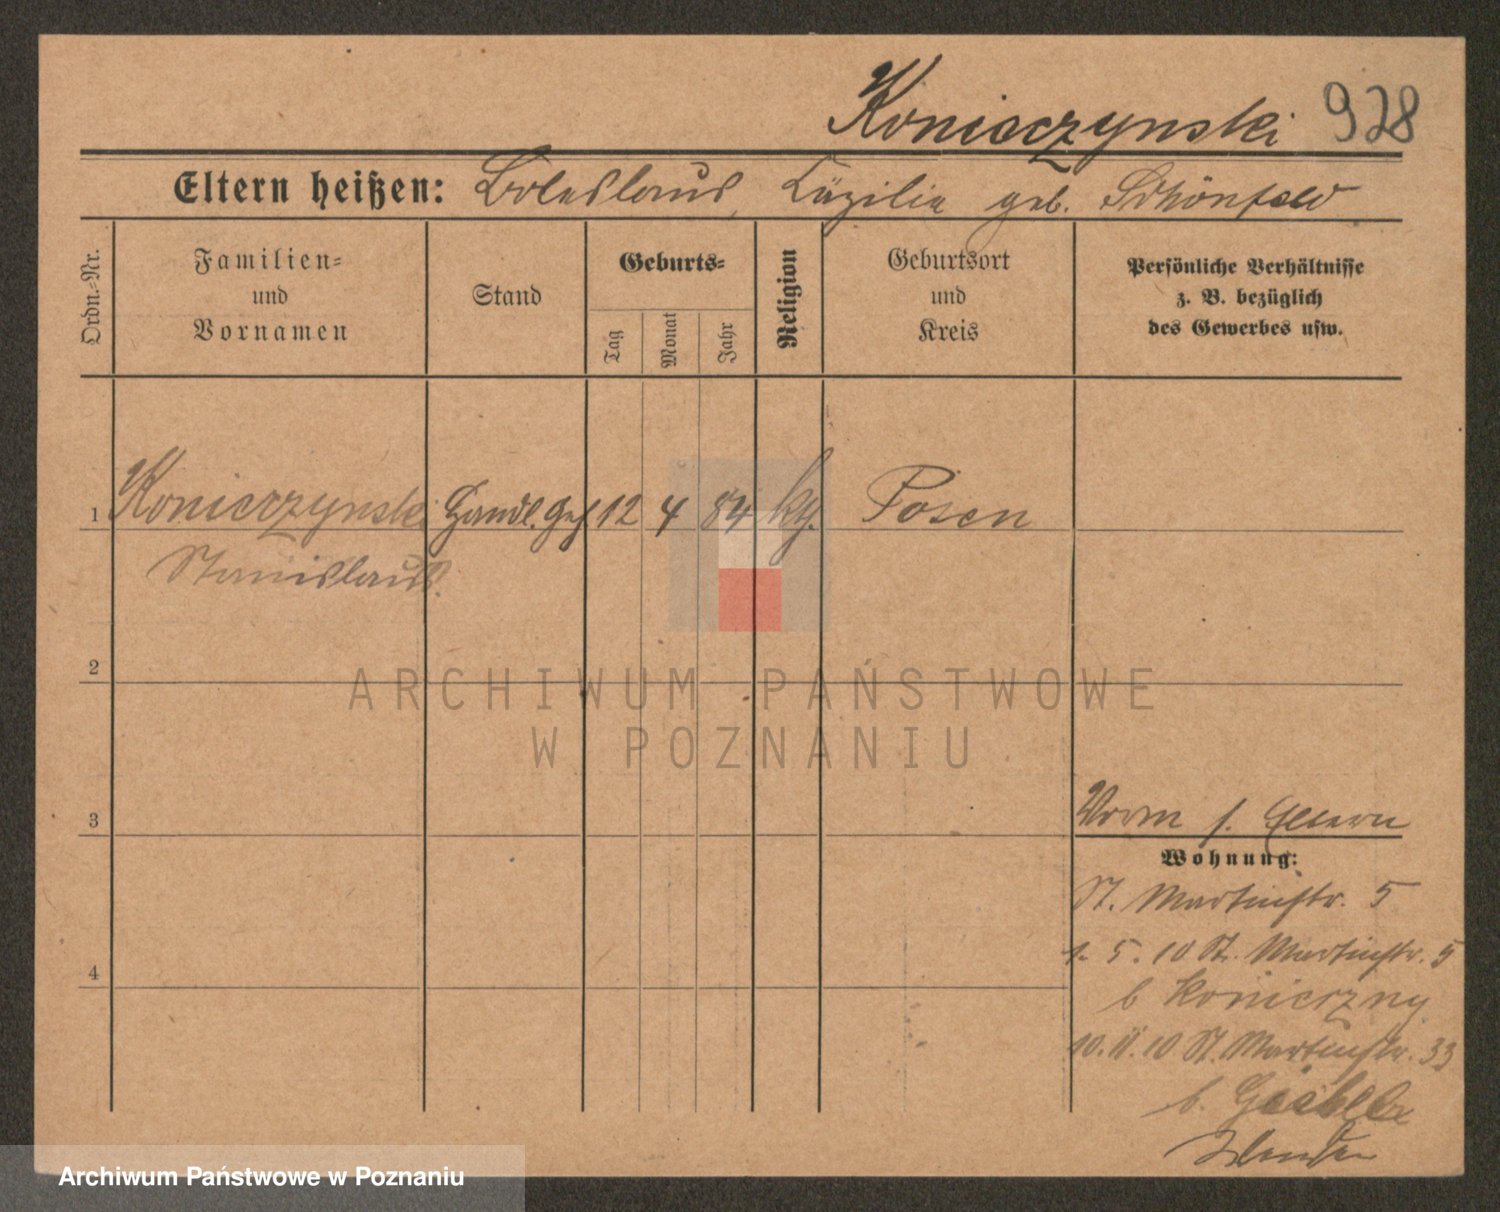 Konieczynski 928
Eltern heißen: Boleslaus, Cäzilie geb. Schönfeld
Ordn.-Nr.
Familien-
und
Vornamen
Stand
Geburts-
Tag
Monat
Jahr
Religion
Geburtsort
und
Kreis
Persönliche Verhältnisse
z. B. bezüglich
des Gewerbes usw.
1 Konieczynski Handl. Geh 12 4 84 kg. Posen
Stanislaus.
2
ARCHIWUM PAŃSTWOWE
W POZNANIU
3
Vorm s. Eltern
Wohnung:
St. Martinstr. 5
1. 5. 10 St. Martinstr. 5
b Konieczny
4
10. 11. 10 St. Martinstr. 33
b.
Archiwum Państwowe w Poznaniu